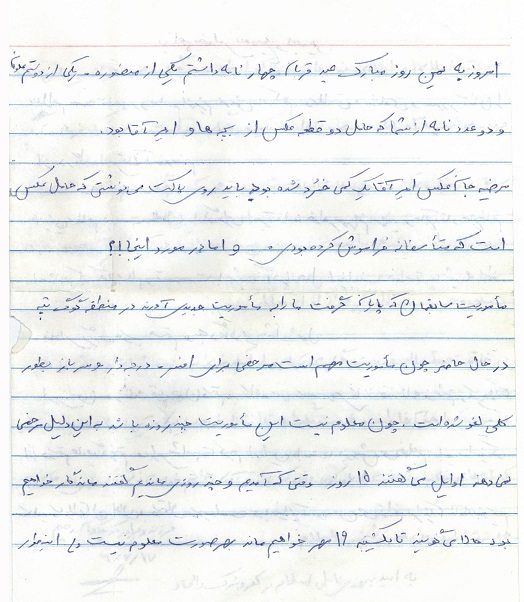 امروز به یمن روز مبارک عید قربان چهار نامه داشتم یکی از منصوره - یکی از دوستم
و دو عدد نامه از شما که حامل دو قطعه عکس از بچه ها و امیر آقا بود.
مرضیه جان عکس امیر آقا یک کمی خُرد شده بود باید روی پاکت می نوشتی که حامل عکس
است که متأسفانه فراموش کرده بودی. و اما در مورد اینجا!؟
مأموریت سابقمان که پایان گرفت ما را به مأموریت جدیدی آوردند در منطقه گوگ تپه
در حال حاضر چون مأموریت مهم است مرخصی برای افسر - درجه دار و سرباز بطور
کلی لغو شده است. چون معلوم نیست این مأموریت چند روزه باشد به این دلیل مرخصی
نمی دهند اوایل می گفتند 15 روز وقتی که آمدیم و چند روزی ماندیم گفتند ماندگار خواهیم
بود حالا می گویند تا یکشنبه 19 مهر خواهیم ماند بهرصورت معلوم نیست ولی اینطور